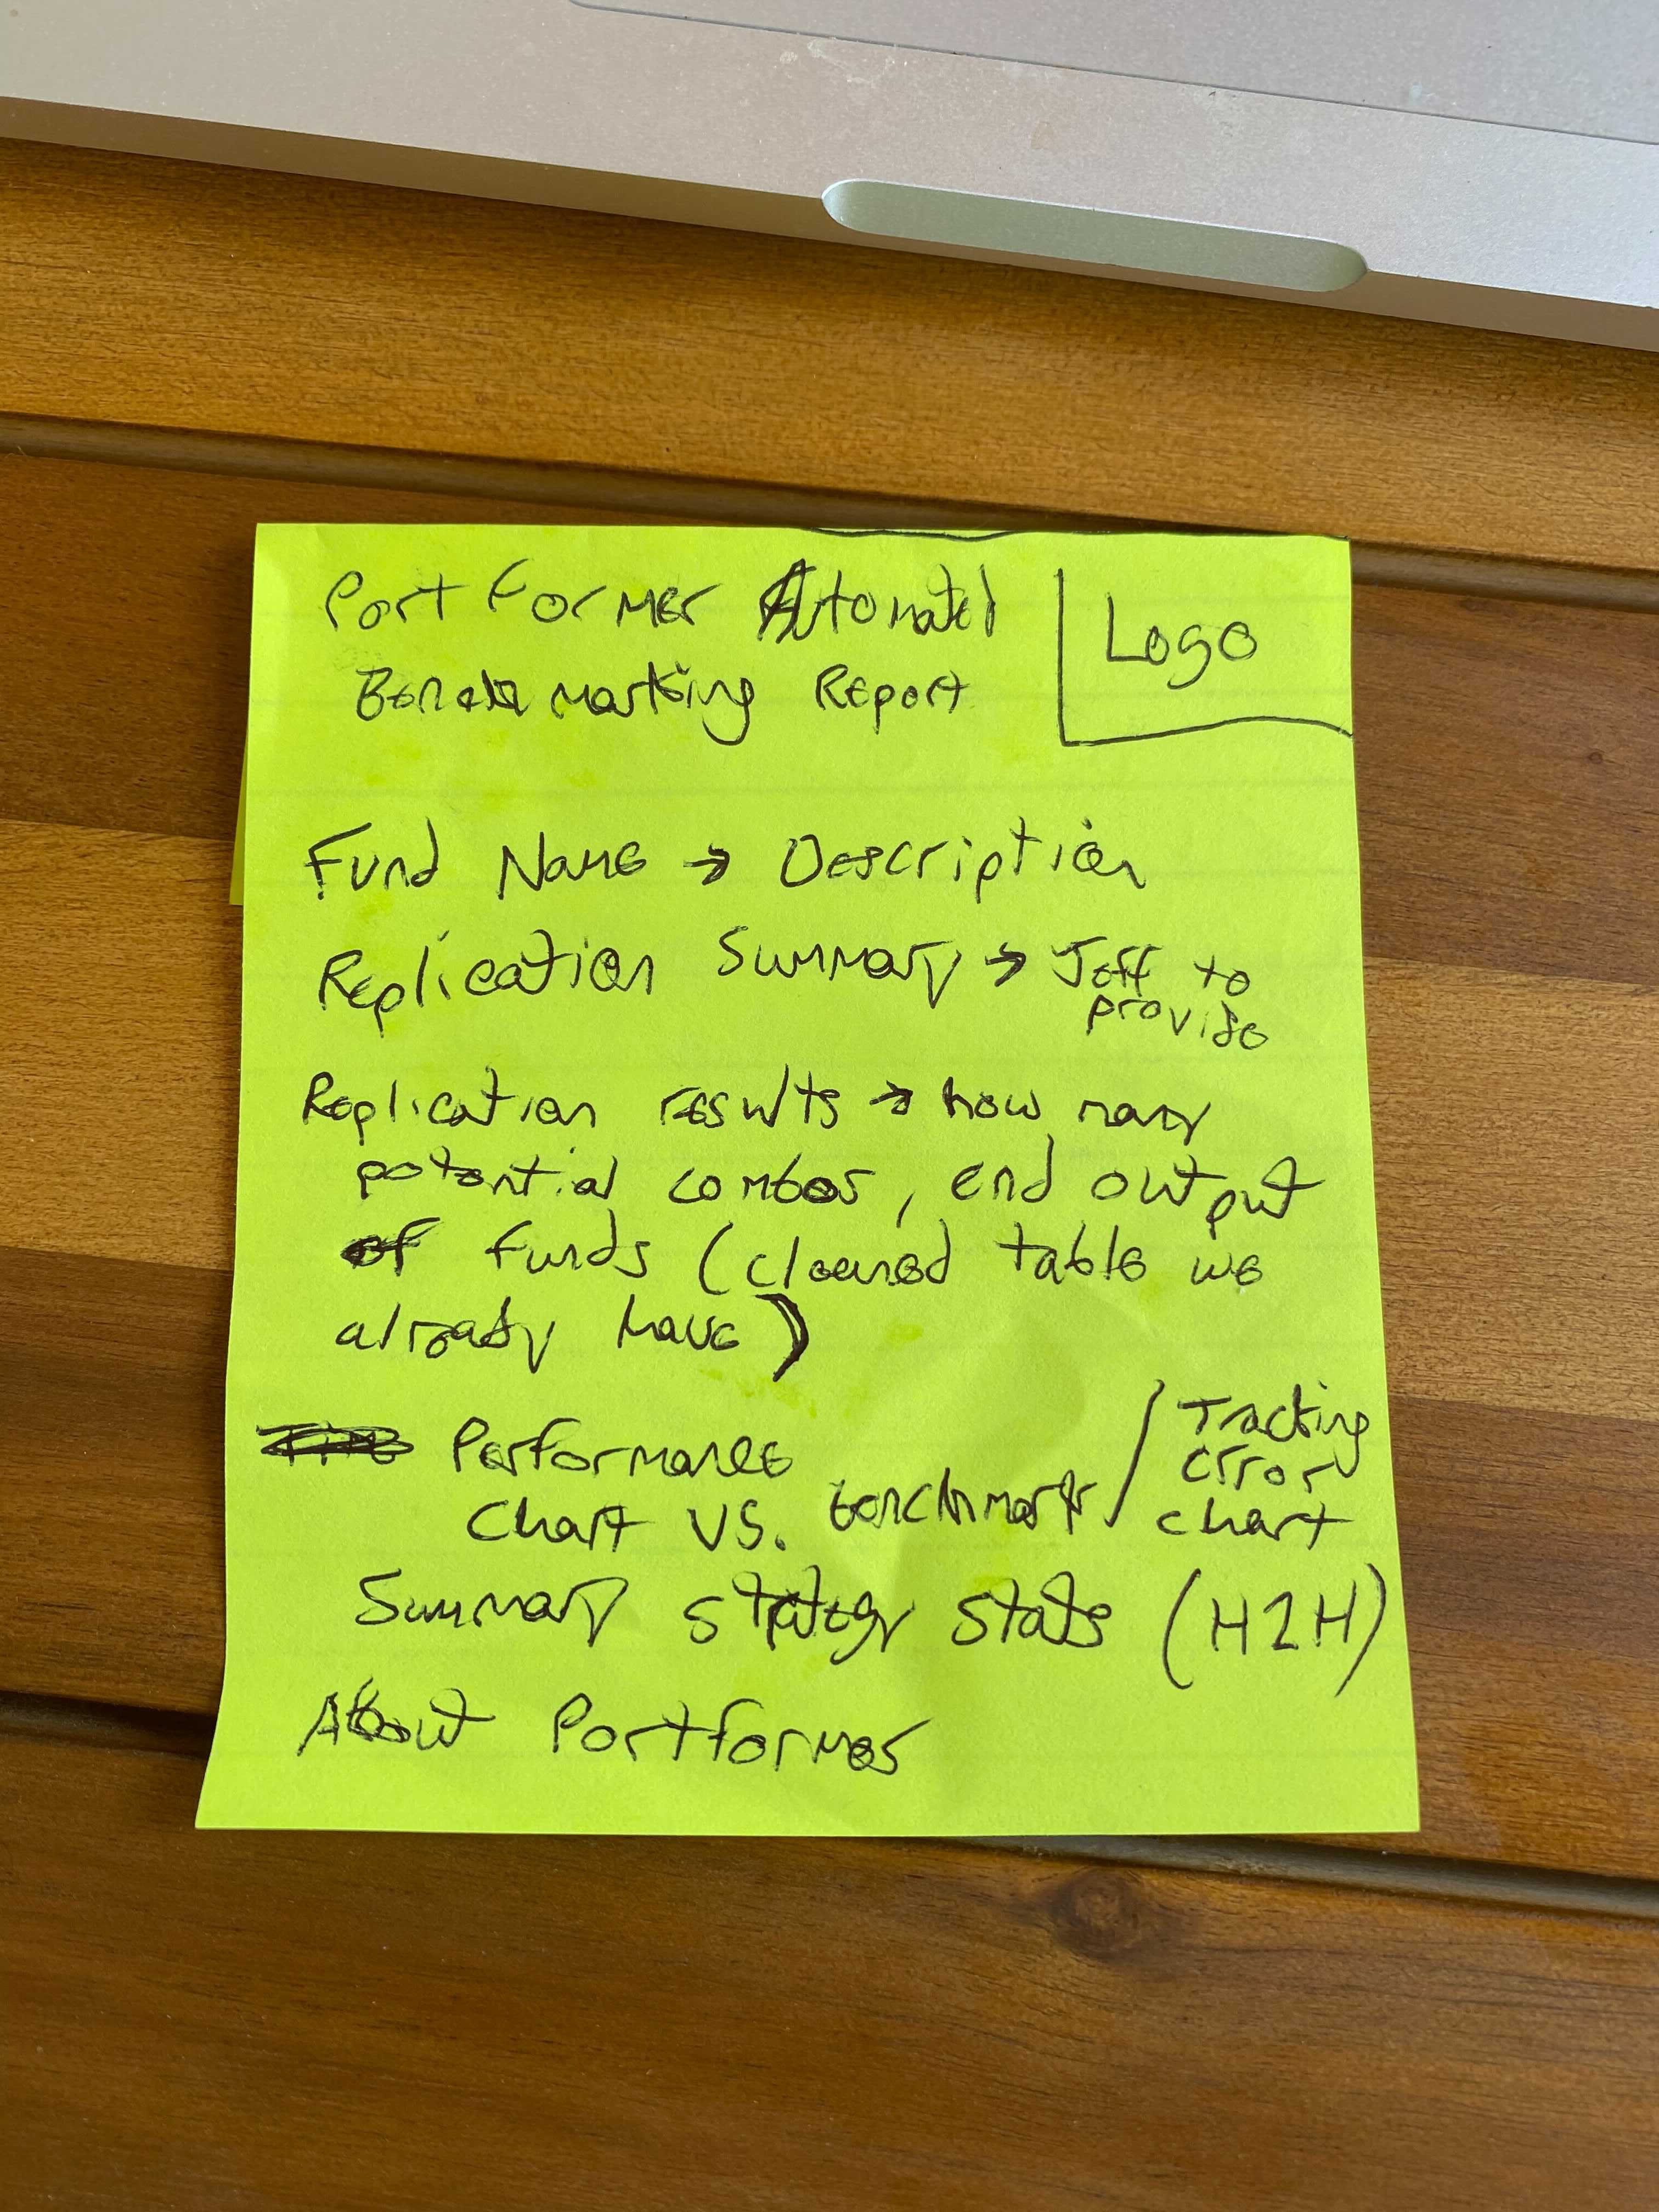 Portformer Automated
Benchmarking Report
Logo
Fund Name → Description
Replication Summary → Joff to
provide
Replication results → how many
potential combos, end output
of funds (cleaned table we
already have)
Performance
Chart VS. benchmark / Tracking
error
chart
Summary strategy stats (H2H)
About Portformer